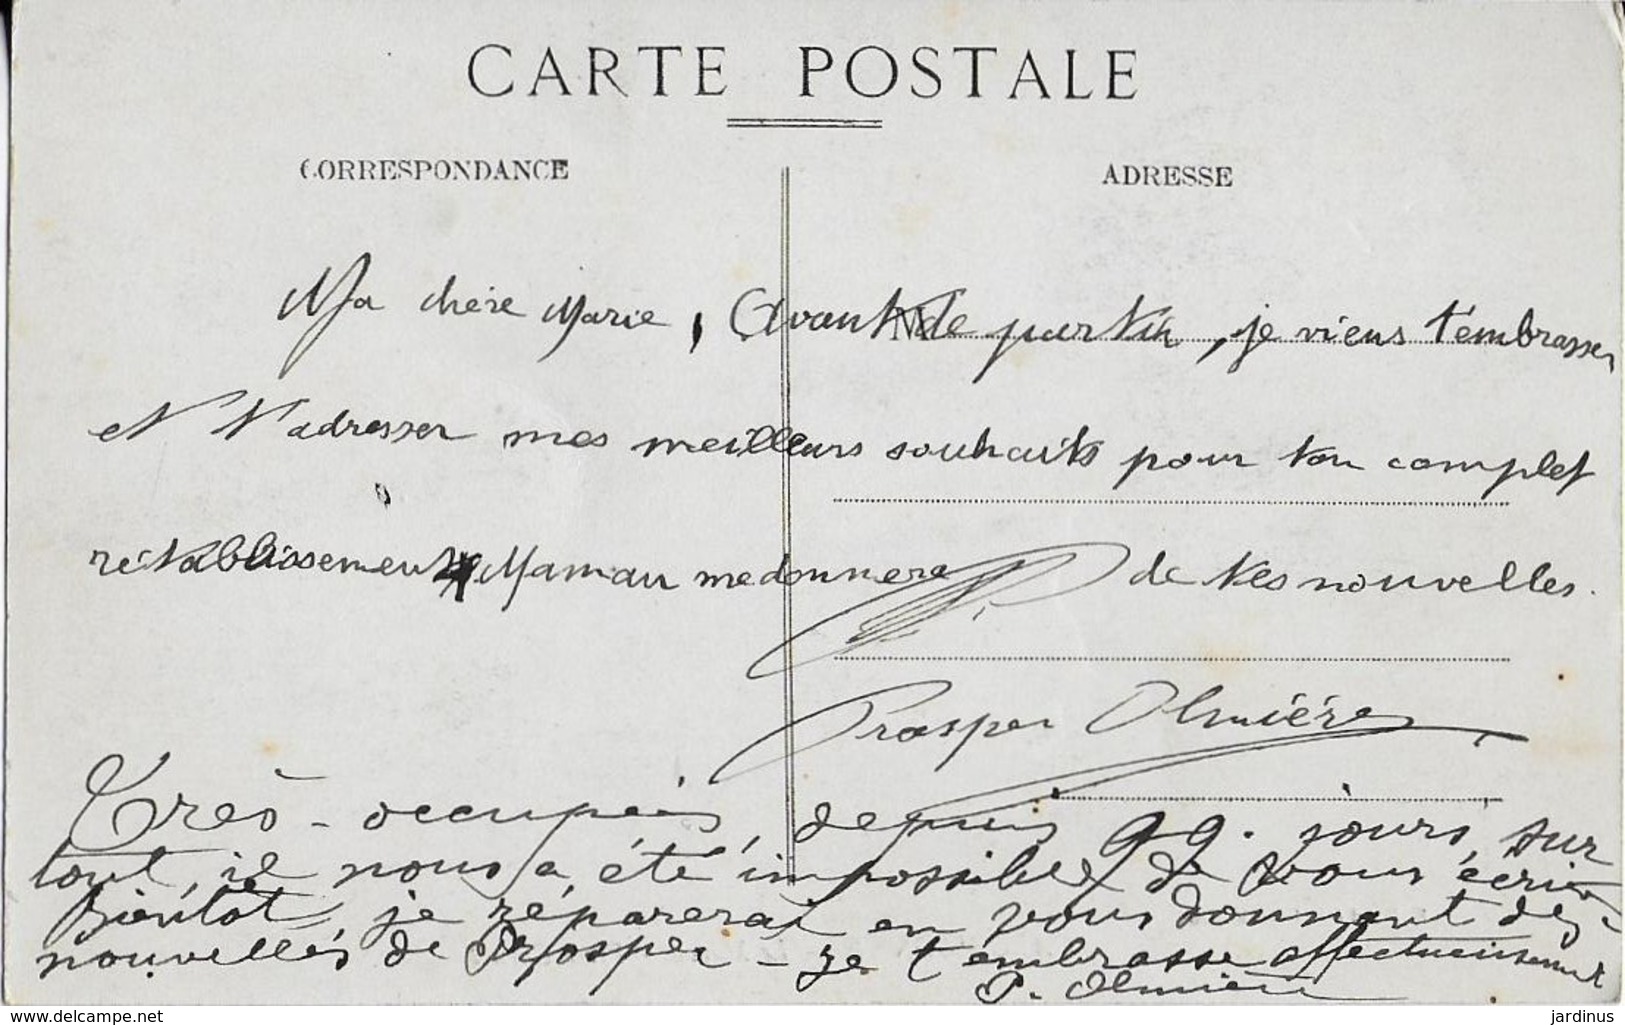 CARTE POSTALE
CORRESPONDANCE
ADRESSE
Ma chère Marie, Avant de partir, je viens t'embrasser
et t'adresser mes meilleurs souhaits pour ton complet
rétablissement Maman me donnera de tes nouvelles.
Prosper Olmières
Très-occupés, depuis qq. jours, sur
tout, il nous a été impossible de vous écrire.
Bientôt, je réparerai en vous donnant des
nouvelles de Prosper - Je t'embrasse affectueusement
P. Olmières
www.delcampe.net
jardinus